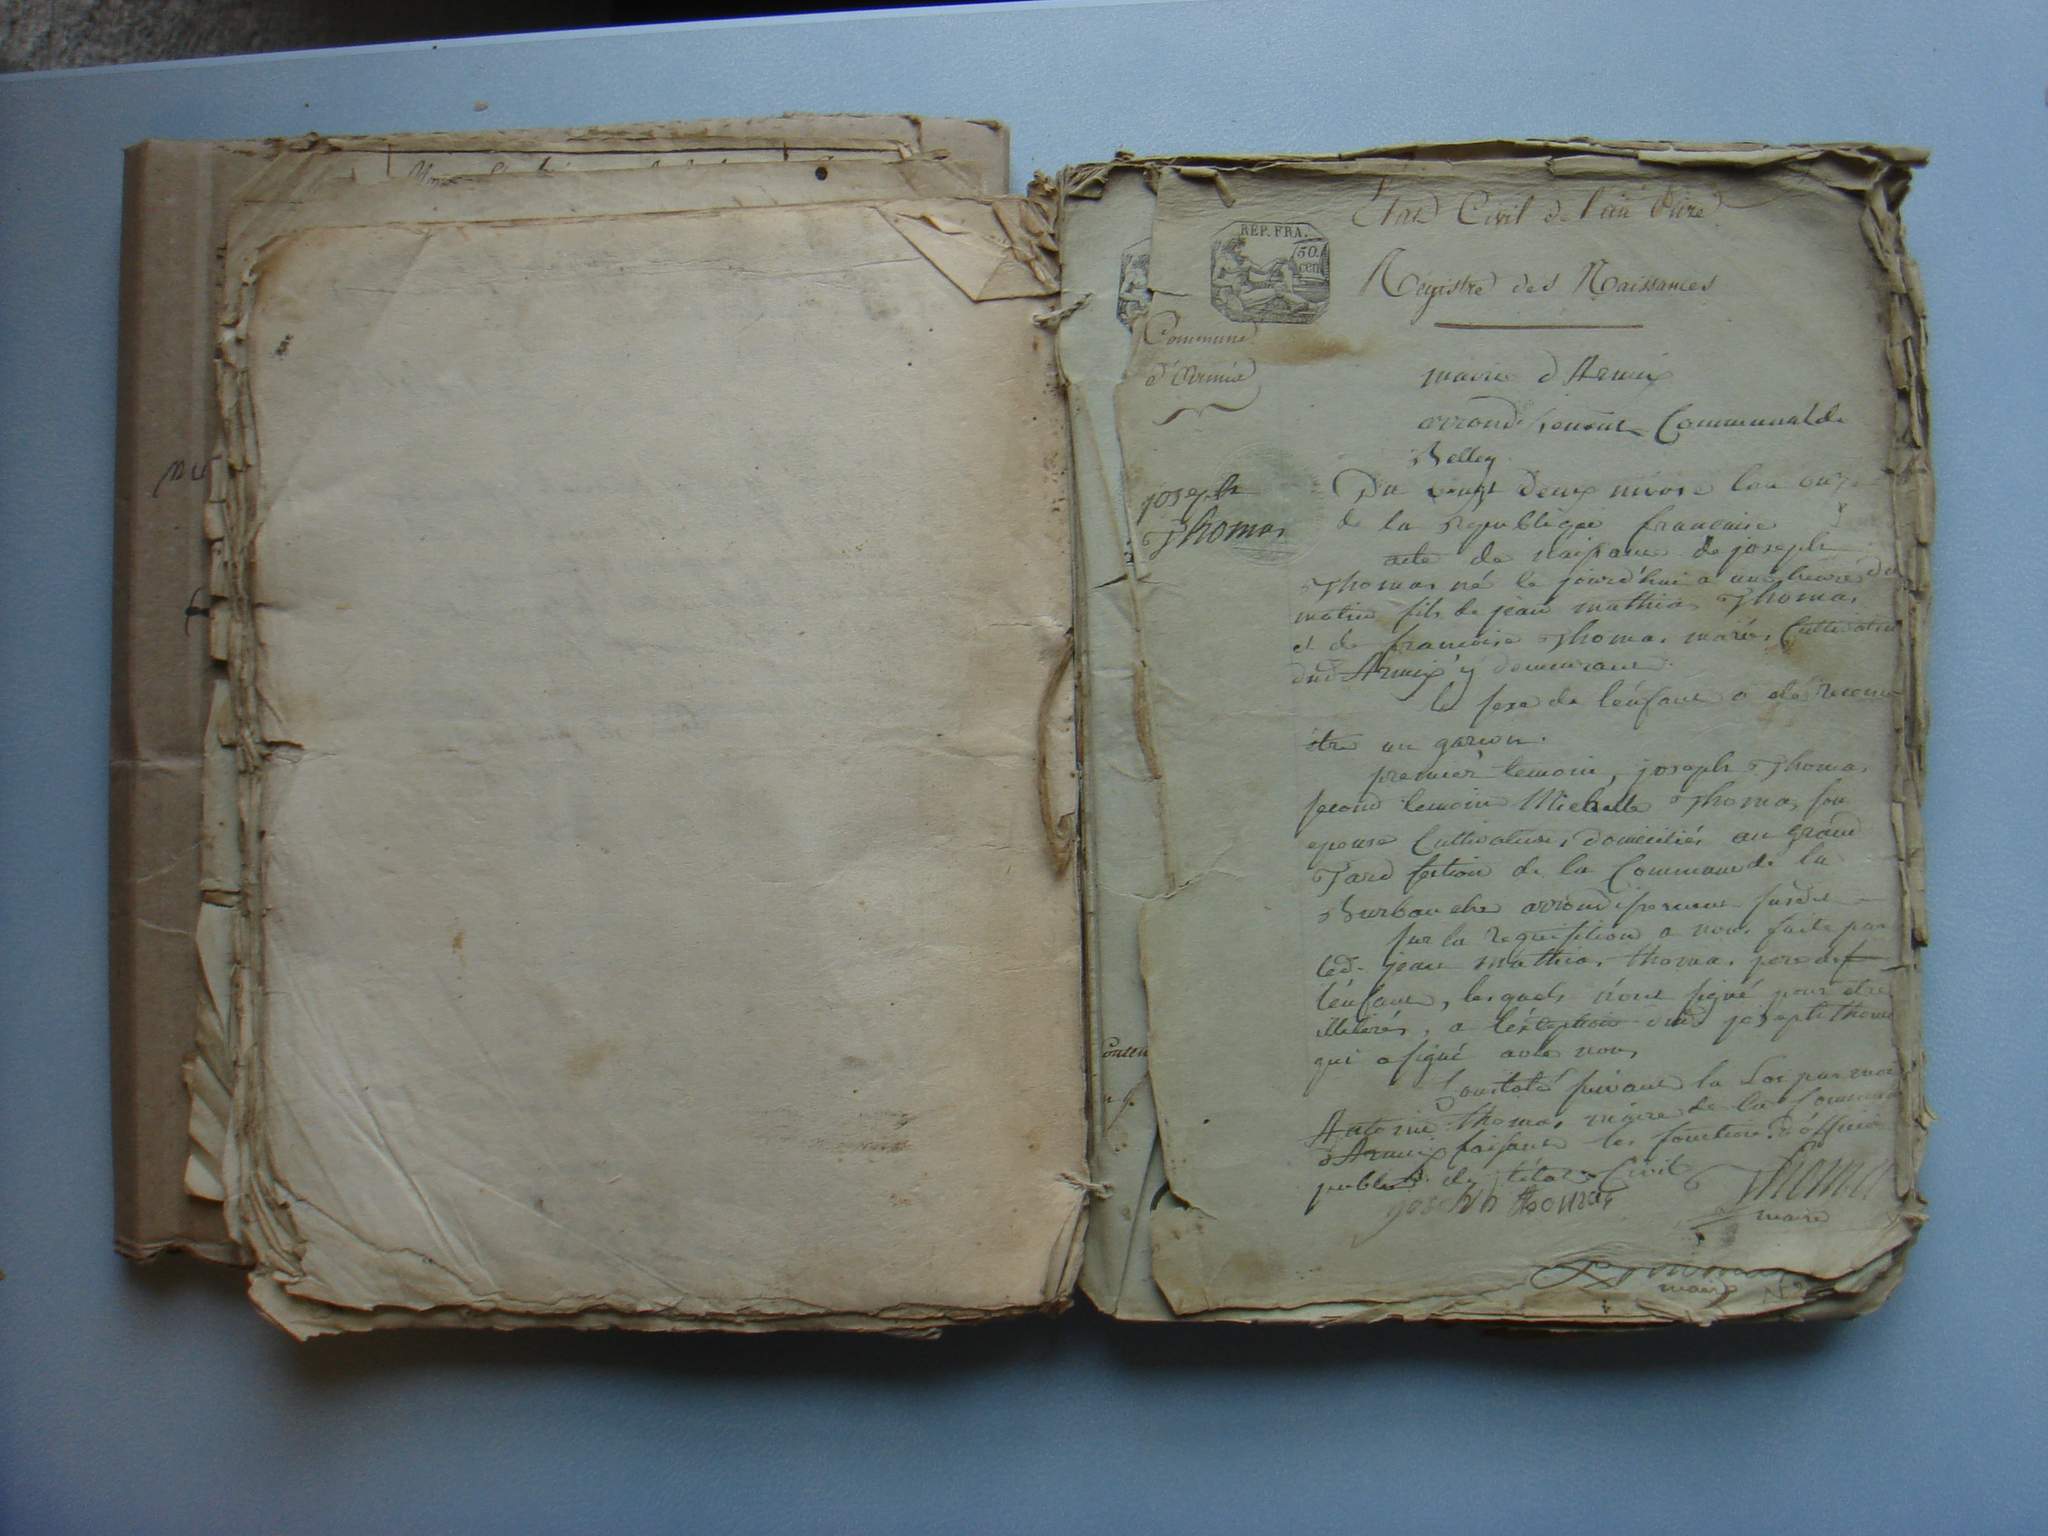 Etat Civil de l'an Onze
REP. FRA.
50.
cen
Registre des Naissances
Commune
d'Armix
mairie d'Armix
arrondissement Communal de
Belley
joseph
Thomas
Du vingt deux nivose l'an onze
de la republique francaise
acte de naissance de joseph
Thomas né le jourd'hui a une heure du
matin fils de jean mathias Thomas
et de francoise Thomas mariés Cultivateurs
dud Armix y demeurant
le sexe de l'enfant a eté reconnu
être un garcon.
premier temoin, joseph Thomas
second temoin Michelle Thomas son
epouse Cultivateurs domiciliés au grand
Tard section de la Commune de la
Burbanche arrondissement susdit
sur la requisition a nous faite par
led. jean mathias thomas pere de
l'enfant, lesquels n'ont signé pour etre
illiterés, a l'exception dud joseph thomas
qui a signé avec nous
Constaté suivant la Loi par moi
Antoine thomas maire de la Commune
d'Armix faisant les fonctions d'officier
public de l'état Civil
joseph thomas
Thomas
maire
maire